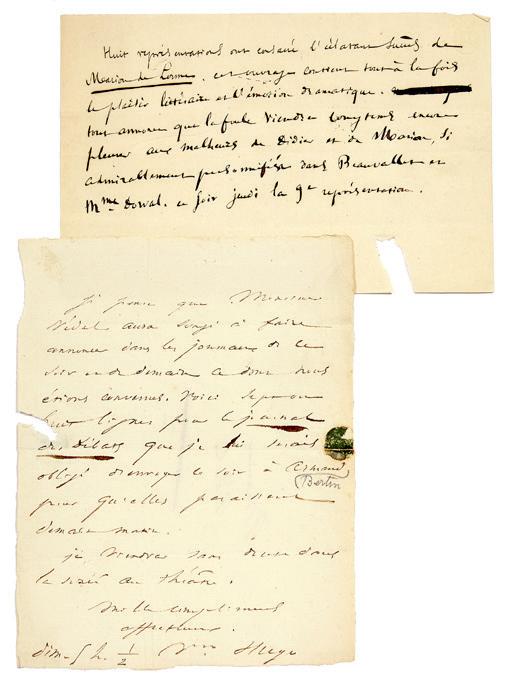 Huit représentations ont consacré l'éclatant succès de
Marion de Lorme. cet ouvrage contient tout à la fois
le plaisir littéraire et l'émotion dramatique.
tout annonce que la foule viendra longtems encore
pleurer aux malheurs de Didier et de Marion, si
admirablement personnifiés dans Beauvallet et
Mme Dorval. ce soir jeudi la 9e représentation.
Je pense que Monsieur
Védel aura songé à faire
annoncer dans les journaux de ce
soir et de demain ce dont nous
étions convenus. Voici sept ou
huit lignes pour le journal
des Débats que je lui serais
obligé d'envoyer ce soir à Armand
Bertin
pour qu'elles paraissent
demain matin.
je viendrai sans doute dans
la soirée au théâtre.
Mille compliments
affectueux.
dim. 5 h. 1/2 Vor Hugo